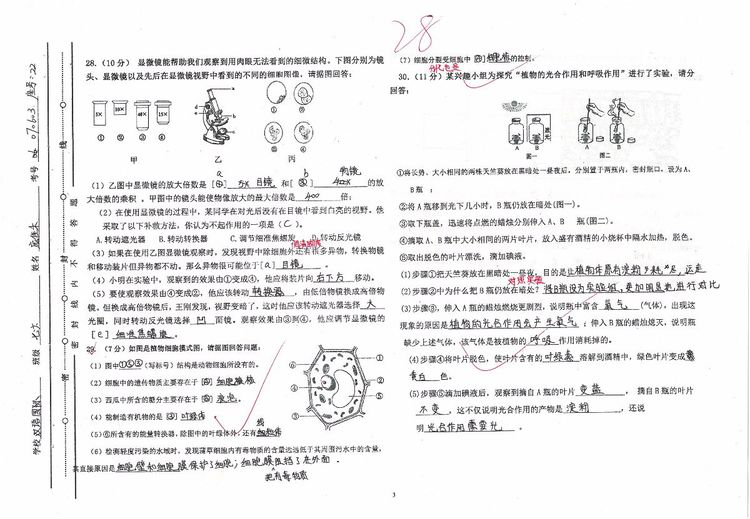 28
28.（10分）显微镜能帮助我们观察到用肉眼无法看到的细微结构。下图分别为镜
头、显微镜以及先后在显微镜视野中看到的不同的细胞图像。请据图回答：
5X 10X 40X 15X
① ② ③ ④
甲 乙 丙
（1）乙图中显微镜的放大倍数是 [ ] 5X 目镜 和 [ ] 的放
大倍数的乘积。甲图中的镜头能使物像放大的最大倍数是 倍；
（2）在使用显微镜的过程中，某同学在对光后没有在目镜中看到白亮的视野。他
采取了以下补救方法，你认为不起作用的一项是（ C ）。
A.转动遮光器 B.转动转换器 C.调节细准焦螺旋 D.转动反光镜
（3）如果在使用乙图显微镜观察时，发现视野中除细胞外还有很多异物，转换物镜
和移动装片但异物都不动。那么异物很可能位于 [a] 目镜 。
（4）小明在实验中，观察到的效果由①变成③，他应将装片向 右下方 移动。
（5）要使观察效果由③变成②，他应该转动 转换器 ，由低倍物镜换成高倍物
镜。但换成高倍物镜后，王刚发现，视野变暗了，这时他应该转动遮光器选择 大
光圈，同时转动反光镜选择 凹 面镜，观察效果由③到④，他应调节显微镜的
29.（7分）如图是植物细胞模式图，请据图回答问题：
（1）图中①⑤⑥（写标号）结构是动物细胞所没有的。
（2）细胞中的遗传物质主要存在于
（3）西瓜中所含的糖分主要存在于
（4）能制造有机物的是 叶绿体
（5）⑥所含有的能量转换器，除图中的叶绿体外，还有
（6）检测轻度污染的水域时，发现蒲草细胞内有毒物质的含量远远低于其周围污水中的含量，
其直接原因是 细胞壁和细胞膜保护了细胞；细胞膜阻挡了在外面。
把有毒物质
（7）细胞分裂受细胞中 的控制。
30.（11分）某兴趣小组为探究“植物的光合作用和呼吸作用”进行了实验，请分
回答：
A B A B
图一 图二
①将长势、大小相同的两株天竺葵放在黑暗处一昼夜后，分别置于两瓶内，密封瓶口。设为A、
B瓶；
②将A瓶移到光下几小时，B瓶仍放在暗处（图一）。
③取下瓶盖，迅速将点燃的蜡烛分别伸入A、B 瓶（图二）。
④摘取A、B瓶中大小相同的两片叶片，放入盛有酒精的小烧杯中隔水加热，脱色。
⑤取出脱色的叶片漂洗，滴加碘液。
（1）步骤①把天竺葵放在黑暗处一昼夜，目的是让植物体原有淀粉
对照实验
（2）步骤②中为什么把B瓶仍放在暗处？将B瓶设为实验组，更加明显地进行对比
（3）步骤③，伸入A瓶的蜡烛燃烧更剧烈，说明瓶中富含 氧气 （气体），出现这
现象的原因是 植物的光合作用会产生氧气；伸入B瓶的蜡烛熄灭，说明瓶
缺少上述气体，该气体是被植物的 呼吸 作用消耗掉的。
（4）步骤④将叶片脱色，使叶片含有的 叶绿素 溶解到酒精中，绿色叶片变成
白 色。
（5）步骤⑤滴加碘液后，观察到摘自A瓶的叶片 变蓝 ， 摘自B瓶的叶片
不变 ，这不仅说明光合作用的产物是 淀粉 ，还说
明 光合作用需要光 。
3